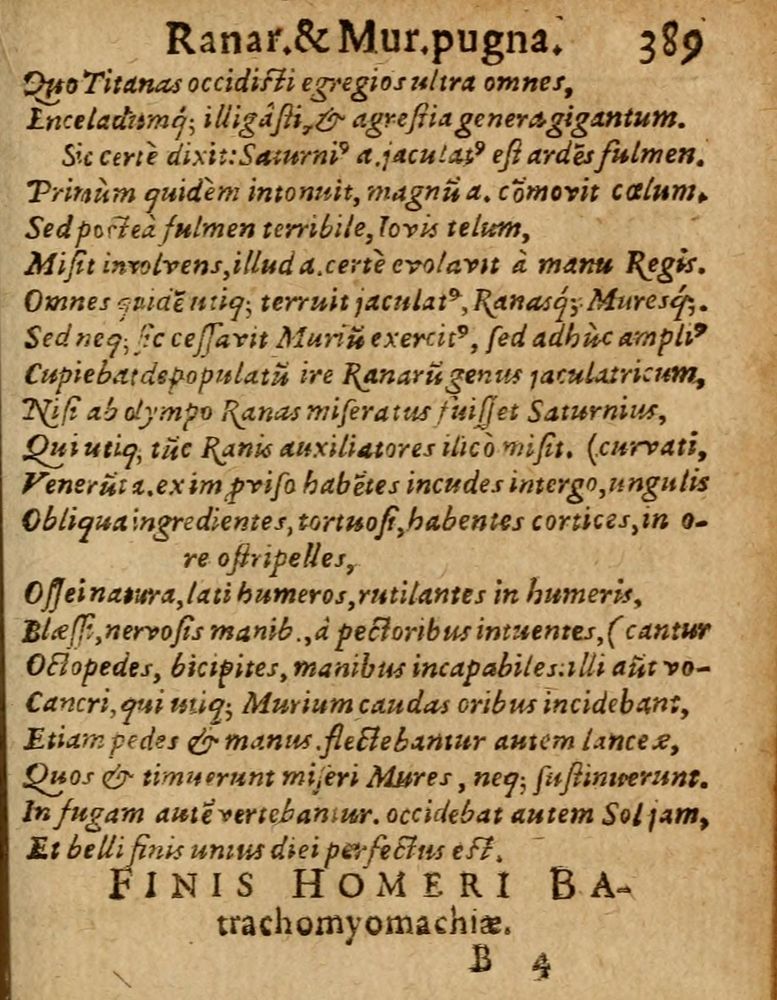 Ranar.& Mur.pugna. 389
Quo Titanas occidisti egregios ultra omnes,
Enceladumq́; illigâsti,& agrestia genera gigantum.
Sic certè dixit: Saturniꝰ a. jaculatꝰ est ardẽs fulmen.
Primùm quidèm intonuit, magnũ a. cõmovit cœlum.
Sed posteà fulmen terribile, Iovis telum,
Misit involvens, illud a. certè evolavit à manu Regis.
Omnes quidẽ utiq; terruit jaculatꝰ, Ranasq́; Muresq́;.
Sed neq; sic cessavit Muriũ exercitꝰ, sed adhùc ampliꝰ
Cupiebat depopulatũ ire Ranarũ genus jaculatricum,
Nisi ab olympo Ranas miseratus fuisset Saturnius,
Qui utiq; tũc Ranis auxiliatores ilicò misit. (curvati,
Venerũt a. ex imꝓviso habẽtes incudes in tergo, ungulis
Obliqua ingredientes, tortuosi, habentes cortices, in o-
re ostripelles,
Ossei natura, lati humeros, rutilantes in humeris,
Blæssi, nervosis manib., à pectoribus intuentes, (cantur
Octopedes, bicipites, manibus incapabiles: illi aũt vo-
Cancri, qui utiq; Murium caudas oribus incidebant,
Etiam pedes & manus. flectebantur autem lanceæ,
Quos & timuerunt miseri Mures, neq; sustinuerunt.
In fugam autẽ vertebantur. occidebat autem Sol jam,
Et belli finis unius diei perfectus est.
FINIS HOMERI BA-
trachomyomachiæ.
B 4